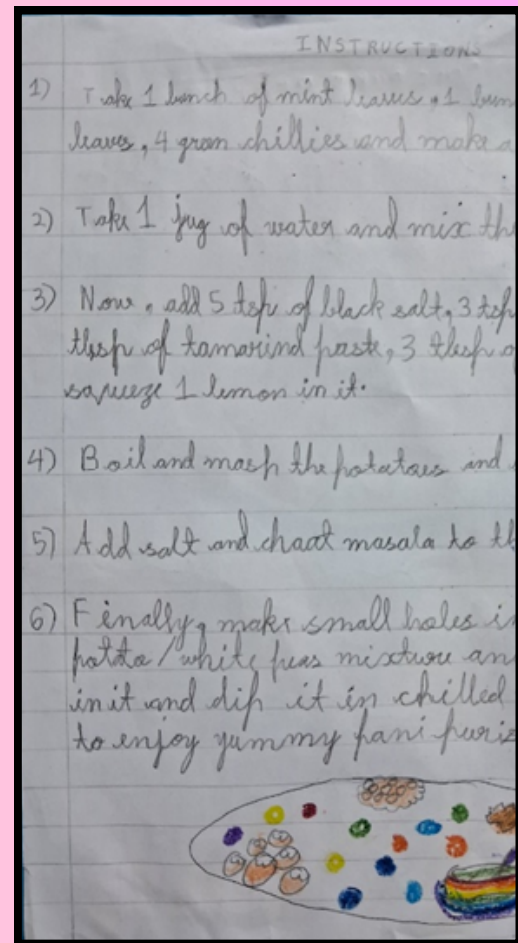 INSTRUCTIONS
1) Take 1 bunch of mint leaves, 1 bun
leaves, 4 green chillies and make a
2) Take 1 jug of water and mix th
3) Now, add 5 tsp of black salt, 3 tsp
tbsp of tamarind paste, 3 tbsp o
squeeze 1 lemon in it.
4) Boil and mash the potatoes and
5) Add salt and chaat masala to th
6) Finally, make small holes i
potato/white peas mixture an
in it and dip it in chilled
to enjoy yummy pani puris